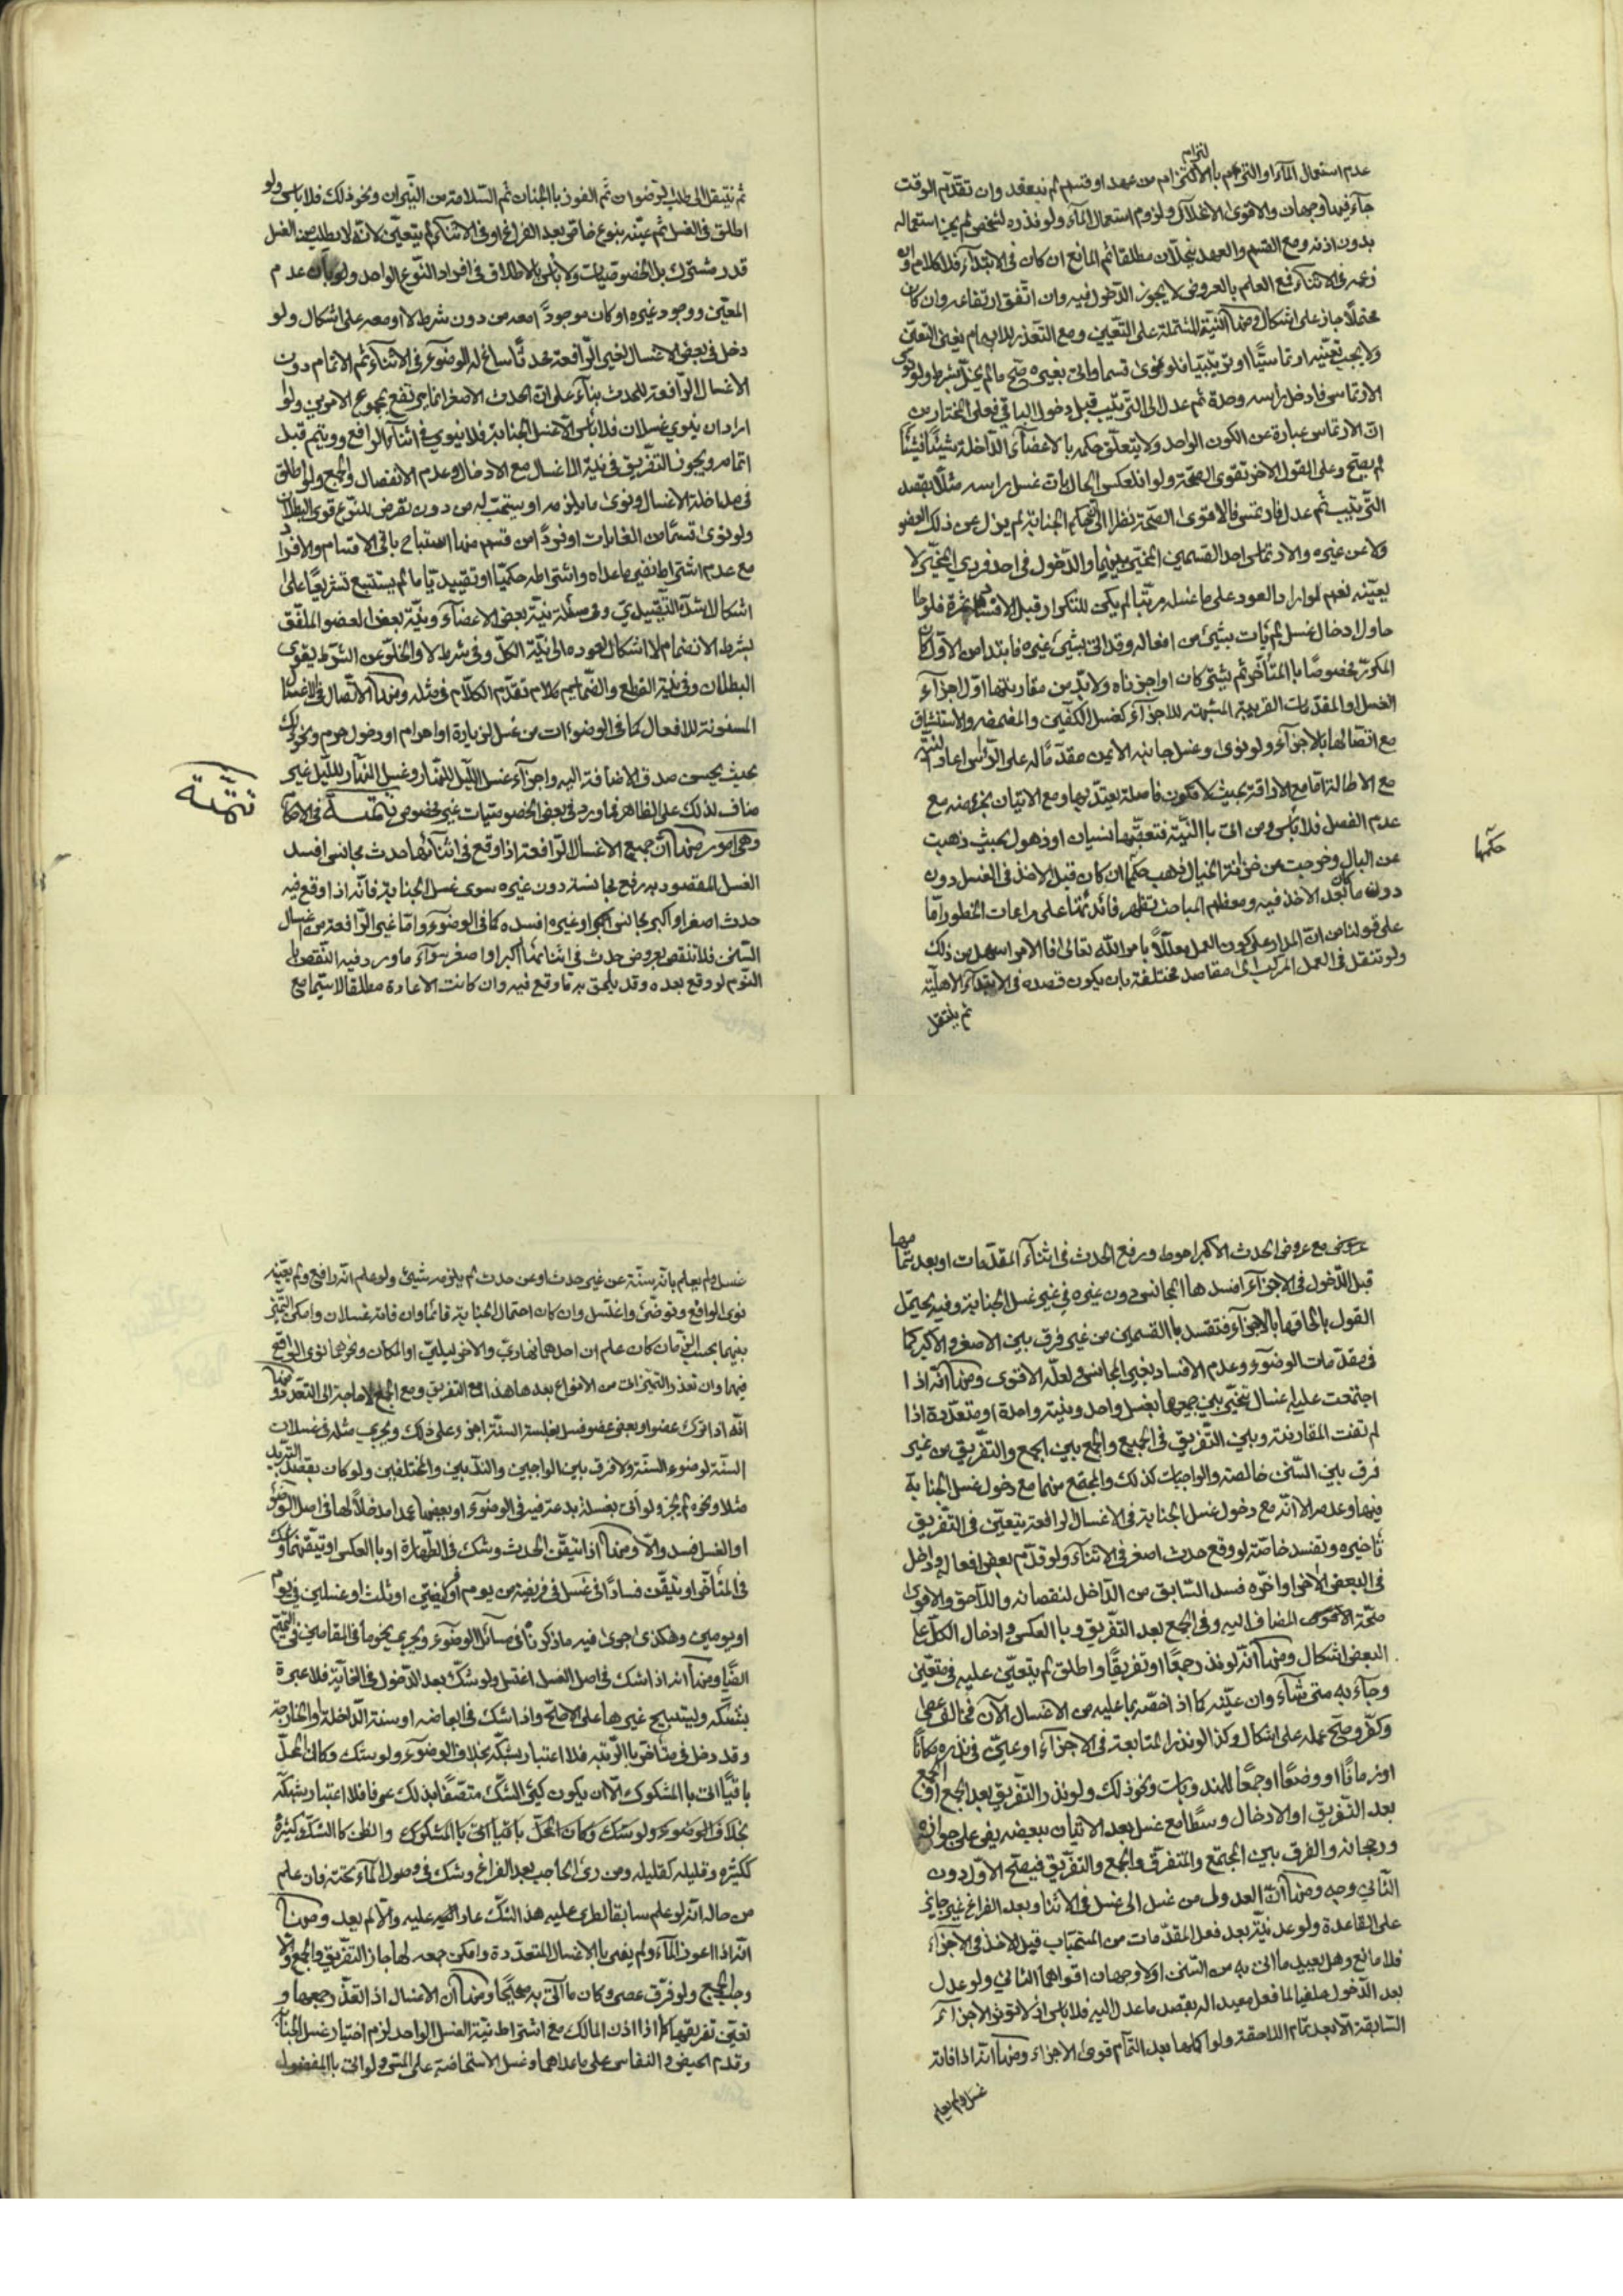 عدم استعمال المآء او التزم بالالتزام من عهد او قسم لم ينعقد وان تقدّم الوقت
جآء فيه وجهان والاقوى الانحلال ولزوم استعمال المآء ولو نذره لشخص لم يجز استعماله
بدون اذنه ومع القسم والعهد ينحلّان مطلقا ثم المانع ان كان في الابتدآء فلا كلام وان
في الاثنآء فمع العلم بالعروض لا يجوز الدّخول فيه وان اتّفق ارتفاعه وان كان
محتملاً جاز على اشكال ومنها النيّة المشتملة على التعيين ومع التعذّر
ولا يجب تعيينه ارتماسيّاً او ترتيبيّاً فلو نوى قسما واتى بغيره صحّ ما لم يخلّ بشرط ولو نوى
الارتماسي فادخل راسه وحده ثم عدل الى التّرتيب قبل دخول الباقي فعلى المختار من
انّ الارتماس عبارة عن الكون الواحد ولا يتعلّق حكمه بالاعضآء الدّاخلة شيئاً فشيئاً
لم يصحّ وعلى القول الاخر تقوى الصحّة ولو انعكس الحال بان غسل راسه مثلاً بقصد
التّرتيب ثم عدل فارتمس فالاقوى الصّحة نظرا الى انّ حكم الجنابة لم يزل عن ذلك العضو
ولا عن غيره والارتماس احد القسمين المخيّر بينهما والدّخول في احد فردي المخيّر لا
يعيّنه نعم لو اراد العود على ما غسله مرتّبا لم يكن للتكرار قبل الارتماس ثمرة فلو
حاول ادخال غسل لم يات بشيئ من افعاله وقد اتى بشيئ غيره فابتدا من الاوّل كان
المكرّر مخصوصًا بالمتأخّر ثم بشيئ كان او اجزناه ولا بدّ من مقارنتها اوّل اجزآء
الغسل او المقدّمات القريبة المشبهة للاجزآء كغسل الكفّين والمضمضة والاستنشاق
مع اتّصالها بالاجزآء ولو نوى وغسل جانبه الايمن مقدّما له على الرّاس اعاد النيّة
مع الاطالة امّا مع الاراقة بحيث لا تكون فاصلة يعتدّ بها ومع الاتيان بجزء منه مع
عدم الفصل فلا باس ومن اتى باالنيّة فتعقّبها نسيان او ذهول بحيث ذهبت
عن البال وخرجت من خزانة الخيال ذهب حكمها ان كان قبل الاخذ في الغسل دون
دون ما كان بعد الاخذ فيه ومعظم المباحث تظهر فائدتها على مراعات الخطور امّا
على قولنا من انّ المدار على كون العمل معلّلاً بامر الله تعالى فالامر اسهل من ذلك
ولو تنقل في العمل المركب الى مقاصد مختلفة بان يكون قصده في الابتدآء الاهليّة
ثم ينتقل
حكمها
ثم ينتقل الى طلب الرّضوان ثم الفوز باالجنان ثم السّلامة من النّيران ونحو ذلك فلا باس ولو
اطلق في الغسل ثم عيّنه بنوع خاصّ بعد الفراغ او في الاثنآء لم يتعيّن لانّه لا يطلب من الغسل
قدر مشترك بل الخصوصيّات ولا بأس بالاطلاق في افراد النّوع الواحد ولو بان عدم
المعيّن ووجود غيره او كان موجوداً معه من دون شرط لا او معه على اشكال ولو
دخل في بعض الاغسال لغير الرّافعة محدثًا ساغ له الوضوء في الاثنآء ثم الاتمام دون
الاغسال الرّافعة للحدث بنآء على انّ الحدث الاصغر انّما يرتفع بمجموع الامرين ولو
اراد ان ينوي غسلان فلا بأس الّا غسل الجنابة فلا ينوي في اثنآء الرافع ويتم قبل
اتمامه ويجوز التفريق في نيّة الاغسال مع الادخال وعدم الانفصال والجمع ولو اطلق
في مداخلة الاغسال ونوى ما يلزمه او يستحبّ له من دون تعرض للنّوع قوى البطلان
ولو نوى قسمًا من الغايات او فردًا من قسم منها استباح باقي الاقسام والافراد
مع عدم اشتراط نفي ما عداه واشتراطه حكميّا او تقييديّا ما لم يستتبع تشريعًا على
اشكال اشدّه التّقييدي وفي مسئلة نيّة بعض الاعضآء ونيّة بعض العضو الملفّق
بشرط الانضمام لا اشكال لعوده الى نيّة الكلّ وفي شرط لا والخلوّ عن الشّرط يقوى
البطلان وفي نيّة القطع والضّمائم كلام تقدّم الكلام في مثله ومنها الاتّصال في الاغسال
المسنونة للافعال كما في الوضوءات من غسل لزيارة او احرام او دخول حرم ونحو ذلك
بحيث يحسن صدق الاضافة اليه واجزآء غسل اللّيل للنّهار وغسل النّهار للّيل غير
مناف لذلك على الظاهر فما ورد في بعض الخصوصيّات غير مخصوص تتمّة في الاحكام
وهي امور منها انّ جميع الاغسال الرّافعة اذا وقع في اثنآئها حدث مجانس افسد
الغسل المقصود به رفع مجانسه دون غيره سوى غسل الجنابة فانّه اذا وقع فيه
حدث اصغر او اكبر مجانس او غيره افسده كما في الوضوء وامّا غير الرّافعة من اغسال
السّنن فلا تنقص بعروض حدث في اثنائها اكبر او اصغر سوآء ما ورد فيه النّقض بـ
النّوم لو وقع بعده وقد يلحق به ما وقع فيه وان كانت الاعادة مطلقا لا سيّما مع
تتمّة
عروض مع عروض الحدث الاكبر احوط ورفع الحدث في اثنآء المقدّمات او بعد تمامها
قبل الدّخول في الاجزآء افسدها المجانس دون غيره في غير غسل الجنابة وفيه يحتمل
القول بالحاقها بالاجزآء فتفسد باالقسمين من غير فرق بين الاصغر والاكبر كما
في مقدّمات الوضوء وعدم الافساد بغير المجانس ولعلّه الاقوى ومنها انّه اذا
اجتمعت عليه اغسال تخيّر بين جميعها بغسل واحد وبنيّة واحدة او متعدّدة اذا
لم تفت المقارنة وبين التّفريق في الجميع والجمع بين الجمع والتّفريق من غير
فرق بين السّنن خالصة والواجبات كذلك والمجتمع منهما مع دخول غسل الجنابة
فيها وعدمه الّا انّه مع دخول غسل الجنابة في الاغسال الرافعة يتعيّن في التّفريق
تأخيره وتفسد خاصّة لو وقع حدث اصغر في الاثنآء ولو قدّم بعض افعاله وادخل
في البعض الاخر او اخّره فسد السّابق من الدّاخل لنقصانه والّلاحق والاقوى
صحّة المضاف اليه وفي الجمع بعد التّفريق وباالعكس وادخال الكلّ على
البعض اشكال ومنها انّه لو نذر جمعًا او تفريقًا واطلق لم يتعيّن عليه في معيّن
وجآء به متى شآء وان عيّنه كما اذا خصّه بما عليه من الاغسال الآن فخالف عصى
وكفّر وصحّ عمله على اشكال وكذا لو نذر المتابعة في الاجزآء او عيّن في نذره مكانًا
او زمانًا او وضعًا او جمعًا للمندوبات ونحو ذلك ولو نذر التّفريق بعد الجمع او الجمع
بعد التّفريق او الادخال وسطًا مع غسل بعد الاتيان ببعضه بقى على جوازه
ورجحانه والفرق بين المجتمع والمتفرّق والجمع والتّفريق فيصحّ الاوّل دون
الثّاني وجه ومنها انّ العدول من غسل الى غسل في الاثنا وبعد الفراغ غير جايز
على القاعدة ولو عدل نيّته بعد فعل المقدّمات من المستحبّات قبل الاخذ في الاجزآء
فلا مانع وهل يعيد ما اتى به من السّنن او لا وجهان اقواهما الثّاني ولو عدل
بعد الدّخول ملغيا لما فعل معيدا له بقصد ما عدل اليه فلا باس اذ لا تفوت الاجزآء
السّابقة الّا بعد تمام اللاحقة ولو اكملها بعد التّمام قوى الاجزاء ومنها انّه اذا فاته
غسل ولم يعلم
غسل ولم يعلم بانّه سنّة عن غير حدث او عن حدث لم يلزمه شيئ ولو علم انّه رافع ولم يعيّنه
نوى الواقع وتوضّئ واغتسل وان كان احتمال الجنابة قائما وان فاته غسلان وامكن التّميّز
بينهما بحسب الزّمان كان علم ان احدهما نهاديّ والاخر ليليّ او المكان ونحوهما نوى الواقع
فيهما وان تعذر التميّز اتى من الانواع بعدها هذا مع التفريق ومع الجمع لا حاجة الى التعدّد ومنها
انّه اذا ترك عضوا او بعض عضو فسل بغلسة السنّة اجزء وعلى ذلك ويجري مثله في غسلات
السنّة لو ضوء السنّة ولا فرق بين الواجبين والندبين والمختلفين ولو كان بقصد التّبريد
مثلا ونحوه لم يجز ولو اتى بغسلة بدعيّة في الوضوء او بعضها عمدا مدخلاً لها في اصل الوضوء
او الغسل فسد والّا فلا ومنها اذا تيقّن الحدث وشك في الطّهارة او باالعكس او تيقّنهما وشك
في المتأخّر او تيقّن فسادًا في غسل في فريضة من يوم او فريضتين او ثلث او غسلين في يوم
او يومين وهكذى اجرى فيه ما ذكرنا في مسآئل الوضوء ويجري نحو ما في المقامين في التّيمّم
ايضًا ومنها انّه اذا شك في اصل الغسل اغتسل ولو شكّ بعد الدّخول في الغاية فلا عبرة
بشكّه وليستبيح غيرها على الاصحّ واذا شك في ابعاضه او سننه الدّاخلة والخارجة
وقد دخل في متأخّر باالرّتبة فلا اعتبار بشكّه بخلاف الوضوء ولو شك وكان المحلّ
باقيًا اتى باالمشكوك الّا ان يكون كثير الشّك متّصفًا بذلك عرفا فلا اعتبار بشكّه
بخلاف الوضوء ولو شك وكان المحلّ باقيا اتى باالمشكوك والظن كاالشكّ وكثيره
ككثيره وقليله كقليله ومن رئ الحاجب بعد الفراغ وشك في وصول المآء تحته فان علم
من حاله انّه لو علم سابقا لطرى عليه هذا الشّك عاد اليه والّا لم يعد ومنها
انّه اذا اعوز المآء ولم يفي باالاغسال المتعدّدة وامكن جمعه لها جاز التفريق والجمع والّا
وجب الجمع ولو فرّق عصى وكان ما اتى به صحيحًا ومنها ان الاغسال اذا تعذّر جمعها و
تعيّن تفريقها كما اذا اذن المالك مع اشتراط نيّة الغسل الواحد لزم اختيار غسل الجنابة
وقدم الحيض والنفاس على ما عداهما وغسل الاستحاضة على المسّ ولو اتى باالمفضول